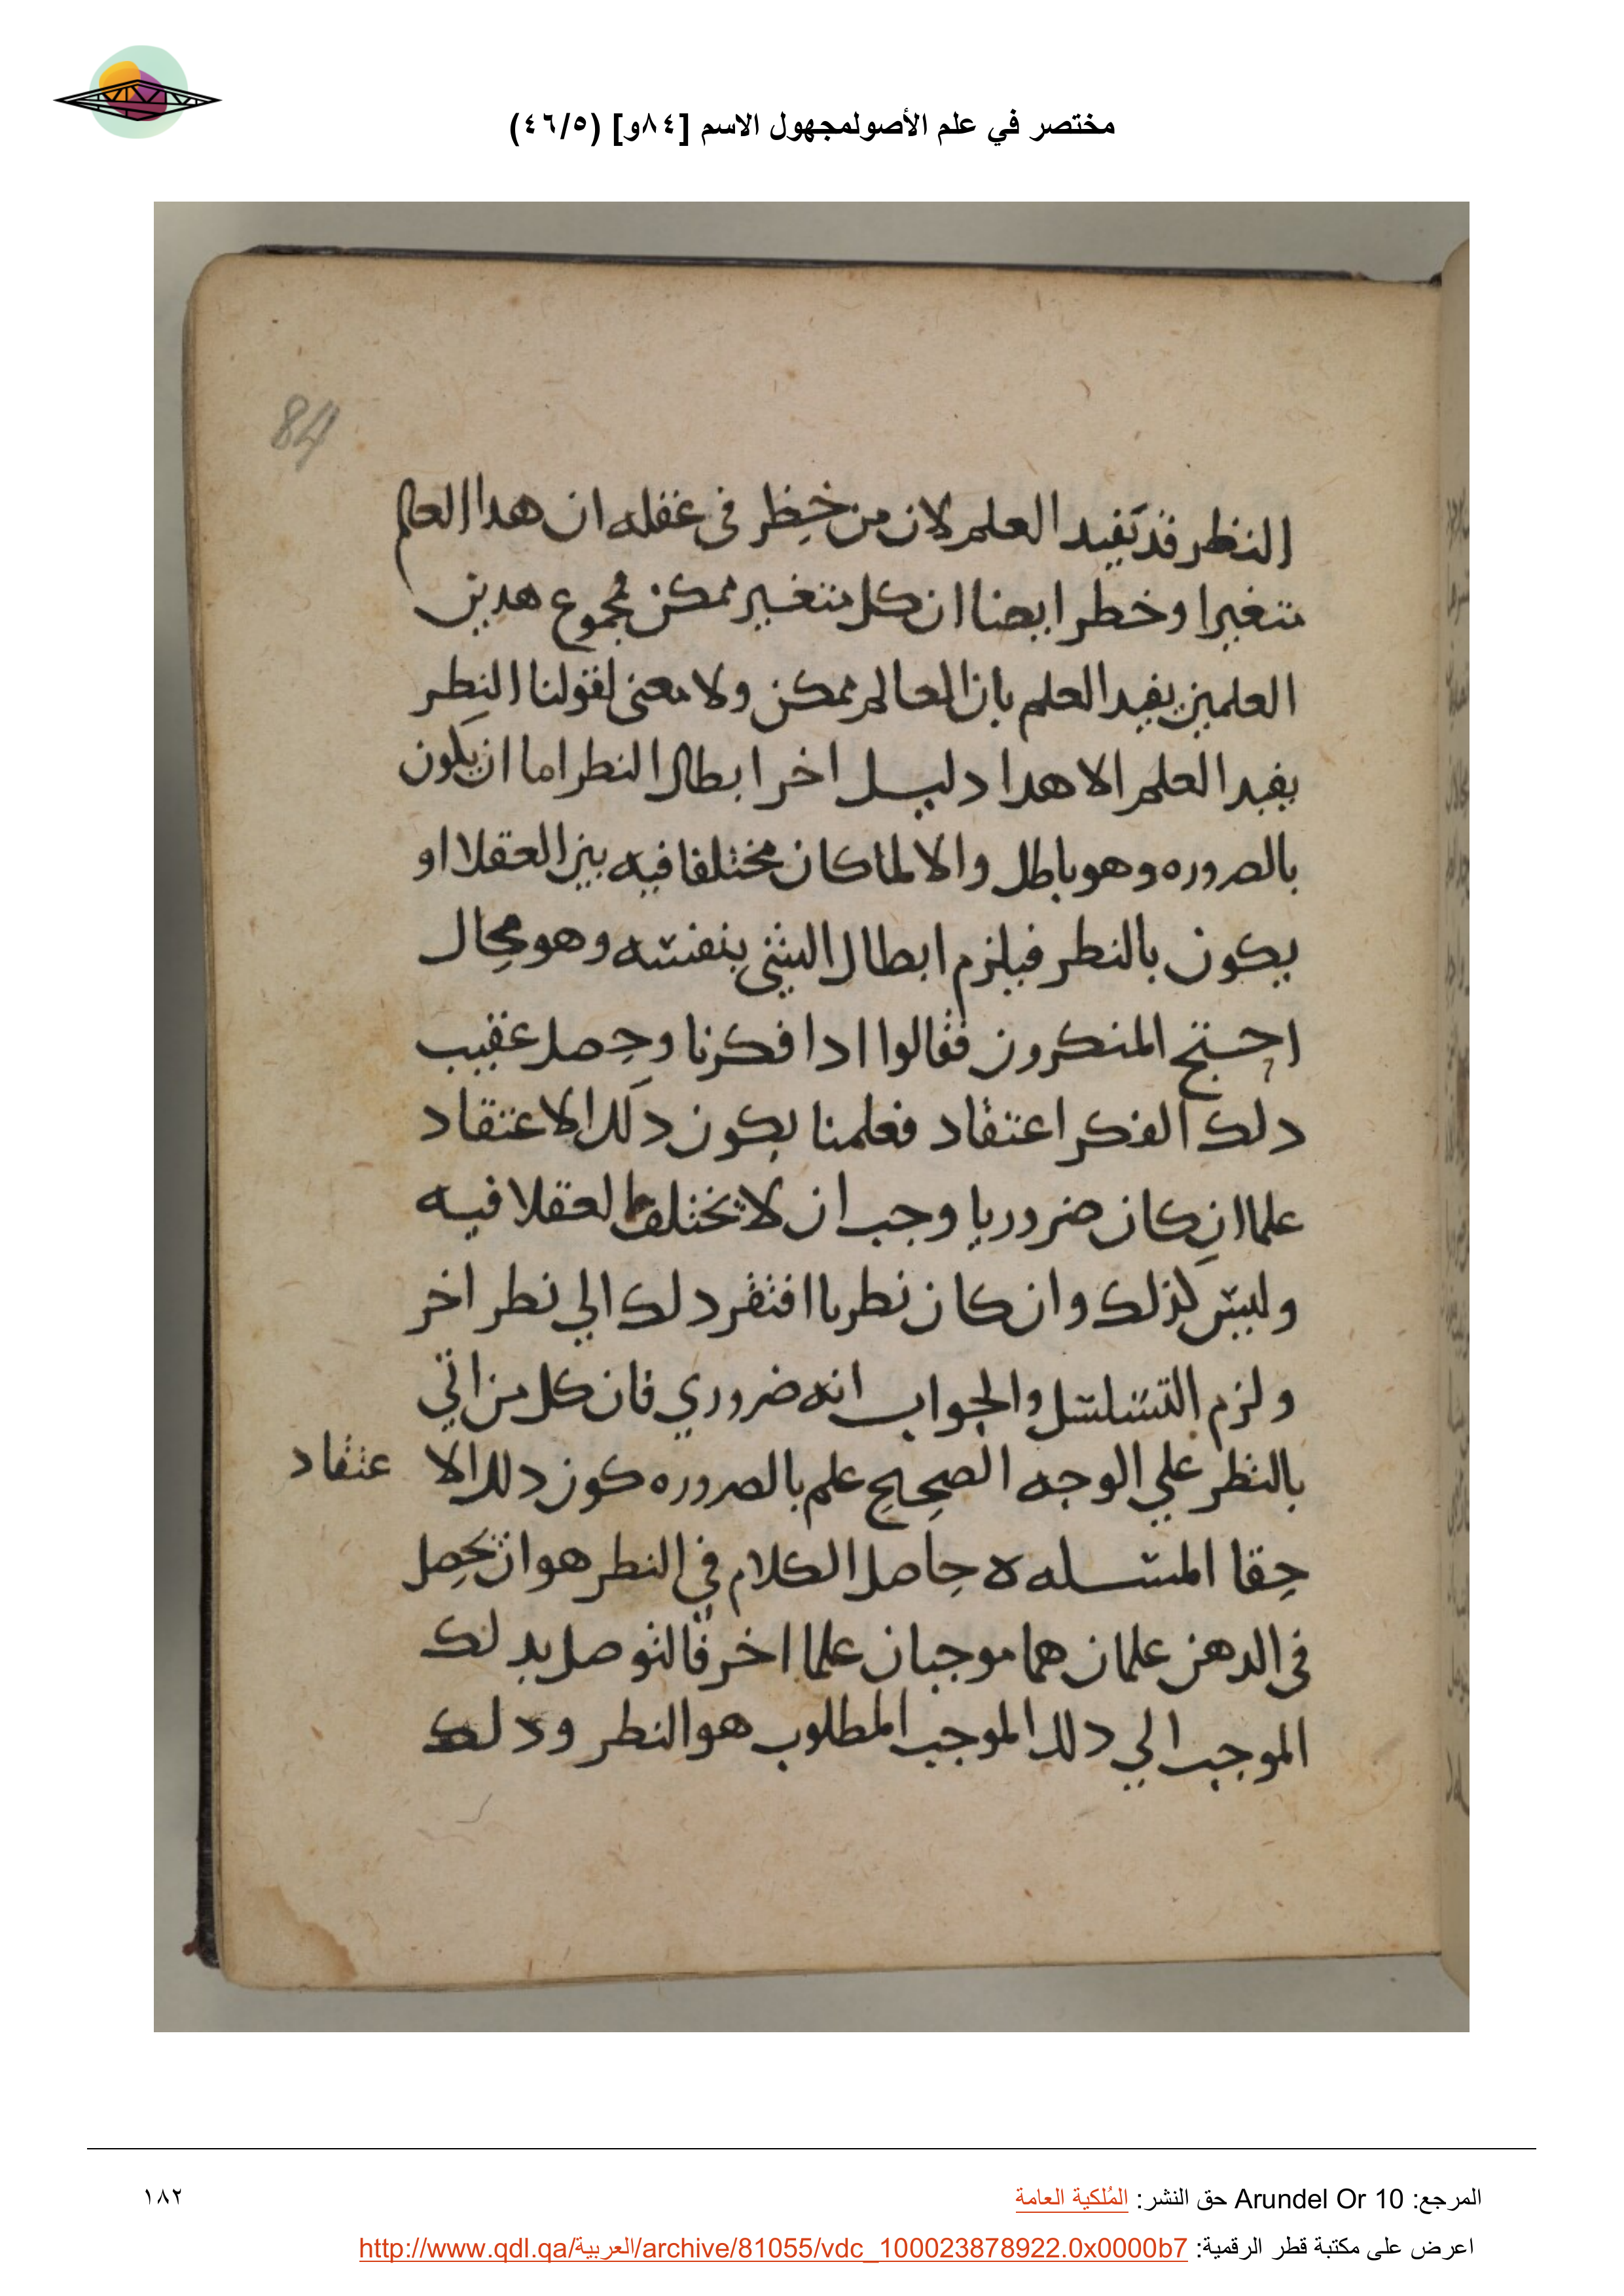 مختصر في علم الأصولمجهول الاسم [٨٤و] (٤٦/٥)
84
النظر قد يفيد العلم لان من خطر في عقله ان هدا العالم
متغيرا وخطر ايضا ان كل متغير ممكن مجموع هدين
العلمين يفيد العلم بان العالم ممكن ولا معنى لقولنا النطر
يفيد العلم الا هدا دليل اخر ابطال النطر اما ان يكون
بالصروره وهو باطل والا لما كان مختلفا فيه بين العقلا او
يكون بالنطر فيلزم ابطال الشي بنفسه وهو محال
احتج المنكرون فقالوا ادا فكرنا وحصل عقيب
دلك الفكر اعتقاد فعلمنا بكون دلك الاعتقاد
علما ان كان ضروريا وجب ان لا يختلف العقلا فيه
وليس كذلك وان كان نطريا افتقر دلك الي نطر اخر
ولزم التسلسل والجواب انه ضروري فان كل من اتي
بالنظر علي الوجه الصحيح علم بالصروره كون دلك الا عتقاد
حقا المسله ه حاصل الكلام في النطر هو ان يحصل
في الدهن علمان هما موجبان علما اخر فالتوصل بدلك
الموجب الي دلك الموجب المطلوب هو النطر ودلك
المرجع: Arundel Or 10 حق النشر: المُلكية العامة
١٨٢
اعرض على مكتبة قطر الرقمية: http://www.qdl.qa/العربية/archive/81055/vdc_100023878922.0x0000b7